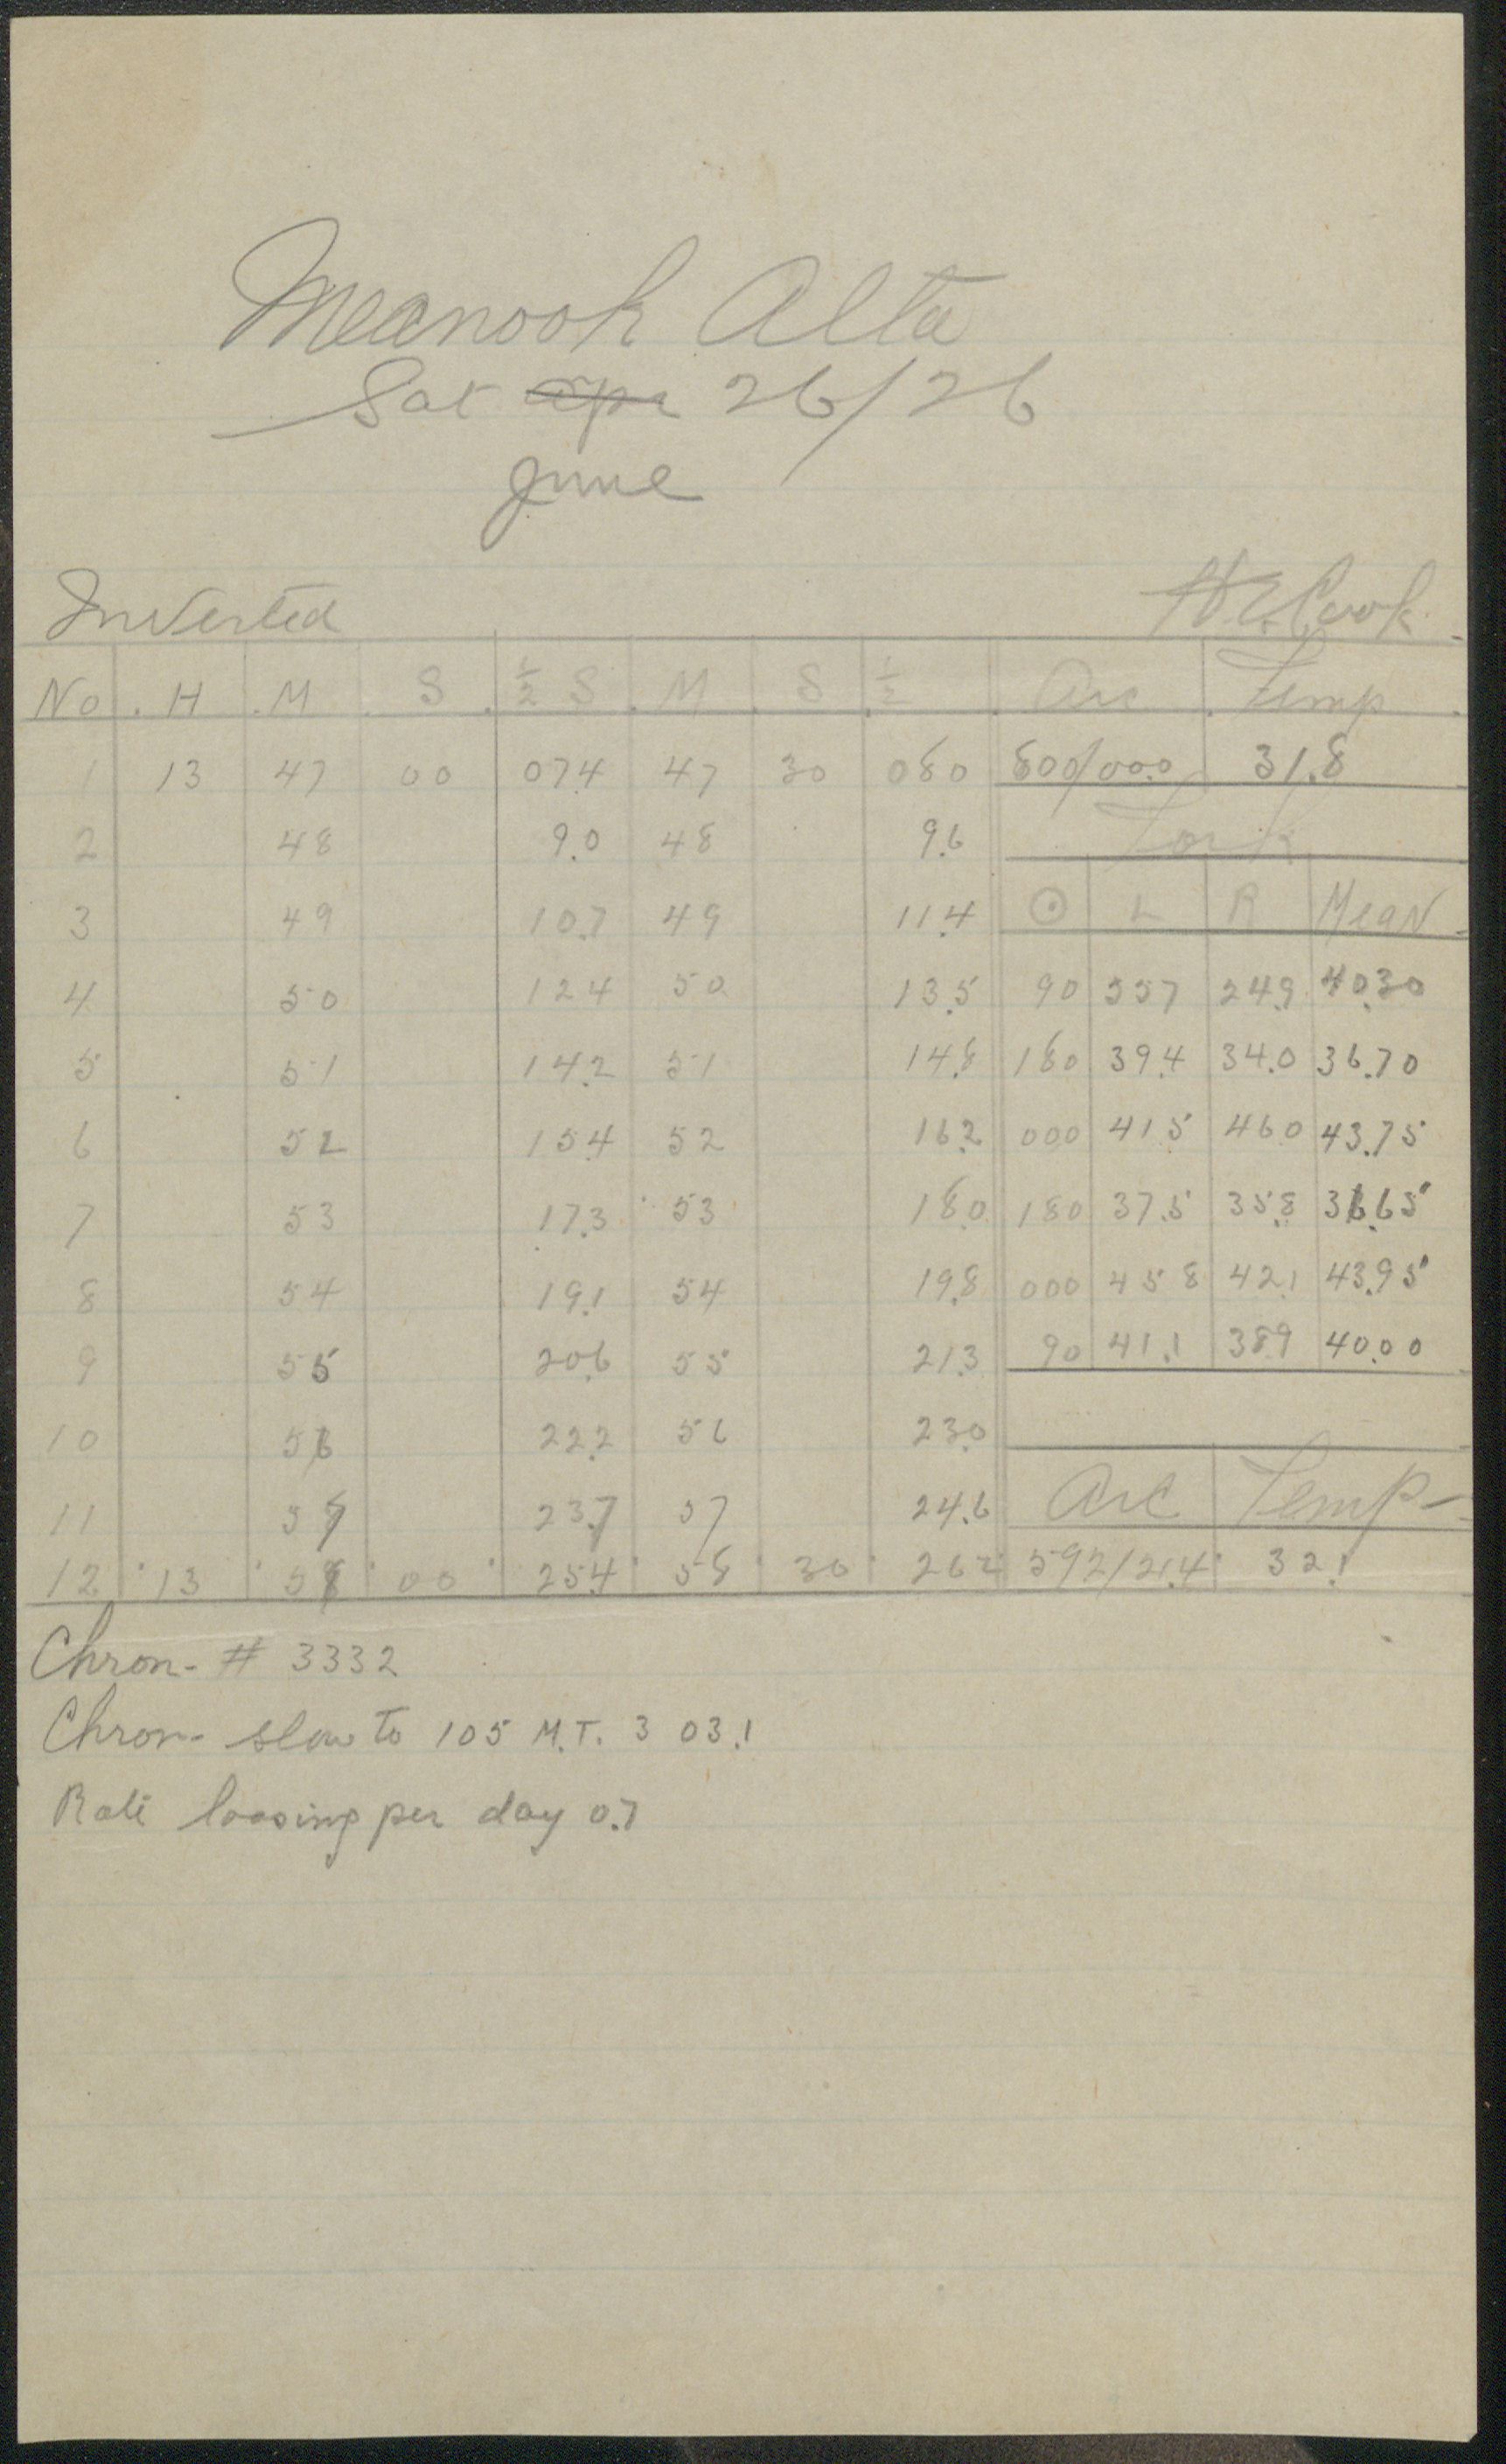 Meanook Alta
Sat apr 26/26
June
Inverted H.E. Cook
No. H M S ½ S M S ½ Arc Temp
1 13 47 00 07.4 47 30 08.0 800/00.0 31.8
2 48 9.0 48 9.6 Tork
3 49 10.7 49 11.4 ⊙ L R Mean
4 50 12.4 50 13.5 90 55.7 24.9 40.30
5 51 14.2 51 14.8 180 39.4 34.0 36.70
6 52 15.4 52 16.2 000 41.5 46.0 43.75
7 53 17.3 53 18.0 180 37.5 35.8 36.65
8 54 19.1 54 19.8 000 45.8 42.1 43.95
9 55 20.6 55 21.3 90 41.1 38.9 40.00
10 56 22.2 56 23.0
11 57 23.7 57 24.6 Arc Temp-
12 13 58 00 25.4 58 30 26.2 592/21.4 32.1
Chron- # 3332
Chron- slow to 105 M.T. 3 03.1
Rate loosing per day 0.7